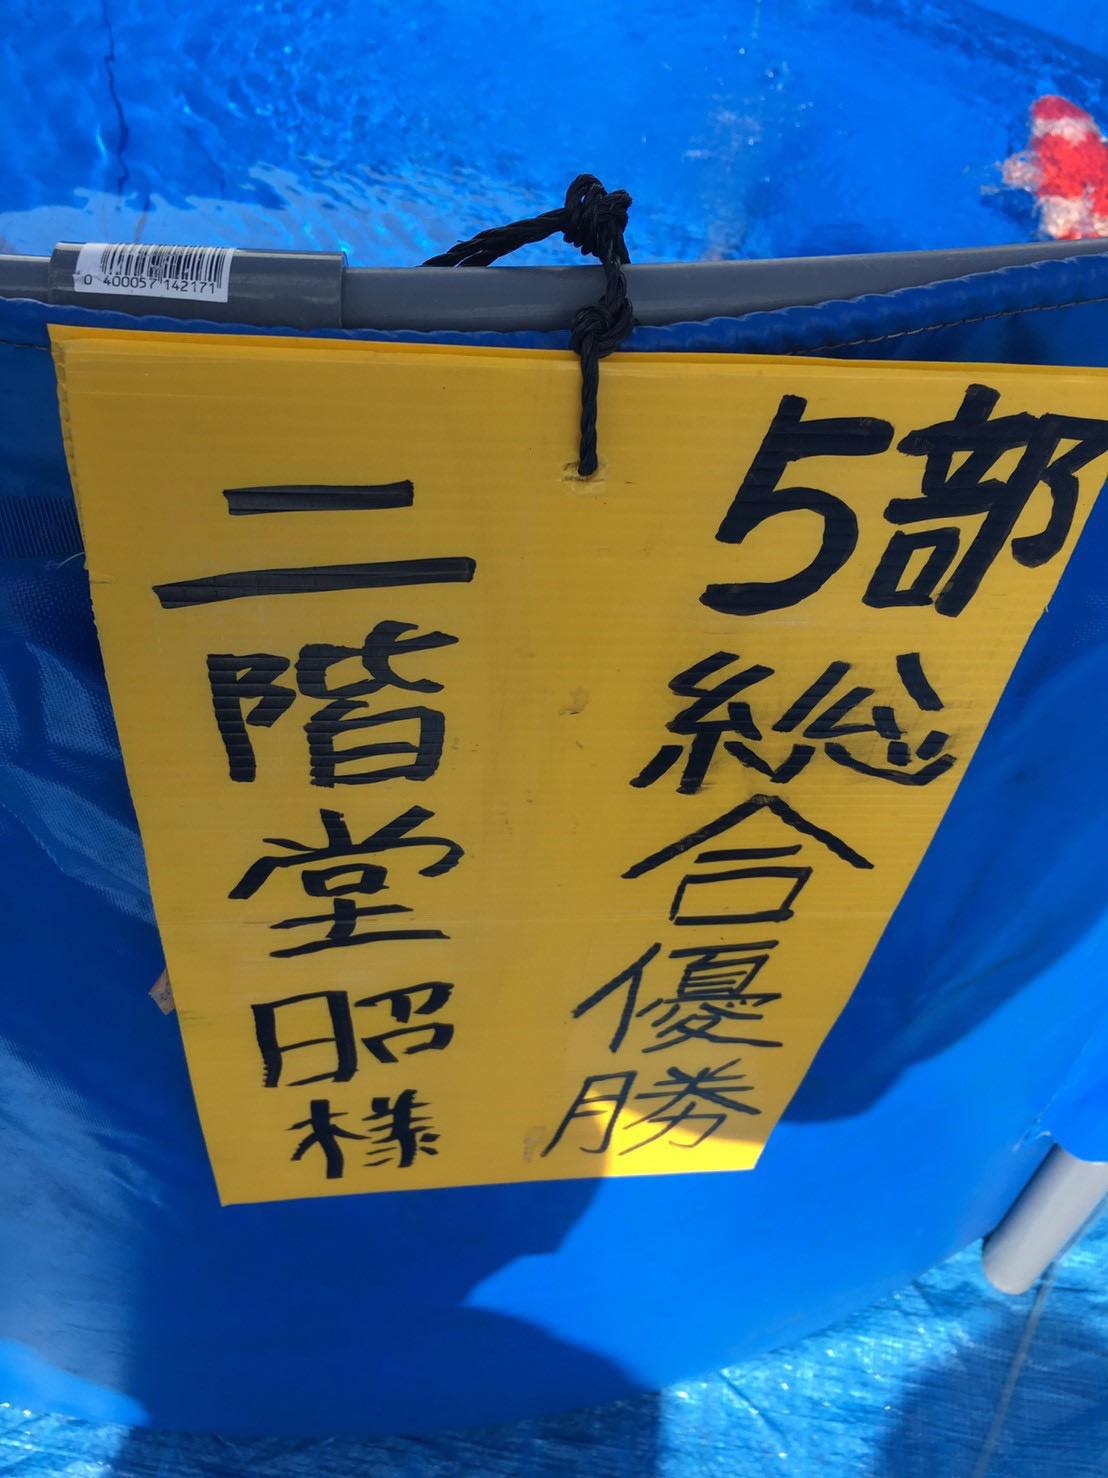 0 400057 142171
5部総合優勝
二階堂昭様